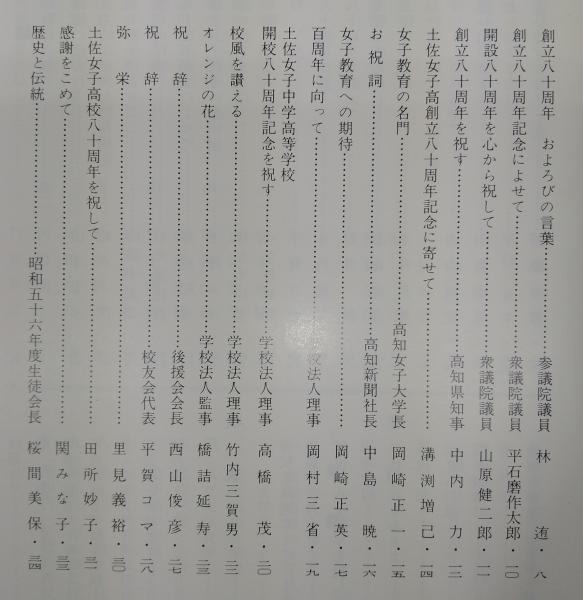 創立八十周年 およろびの言葉……参議院議員 林 迶・八
創立八十周年記念によせて……衆議院議員 平石磨作太郎・一〇
開設八十周年を心から祝して……衆議院議員 山原健二郎・一一
創立八十周年を祝す……高知県知事 中内 力・一二
土佐女子高創立八十周年記念に寄せて…… 溝渕増己・一四
女子教育の名門……高知女子大学長 岡崎正一・一五
お祝詞……高知新聞社長 中島 暁・一六
女子教育への期待…… 岡崎正英・一七
百周年に向って……法人理事 岡村三省・一九
土佐女子中学高等学校
開校八十周年記念を祝す……学校法人理事 高橋 茂・二〇
校風を讃える……学校法人理事 竹内三賀男・二二
オレンジの花……学校法人監事 橋詰延寿・二三
祝 辞……後援会会長 西山俊彦・二七
祝 辞……校友会代表 平賀コマ・二八
弥 栄…… 里見義裕・三〇
土佐女子高校八十周年を祝して…… 田所妙子・三一
感謝をこめて…… 関みな子・三三
歴史と伝統……昭和五十六年度生徒会長 桜間美保・三四